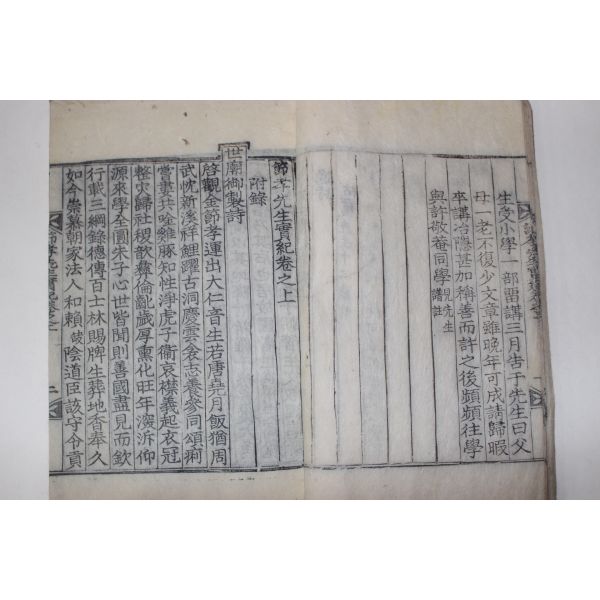 生受小學一部留講三月告于先生曰父
母一老不復少文章雖晚年可成請歸暇
卒講冶隱甚加稱善而許之後頻頻往學
與許敬菴同學見先生譜註
節孝先生實紀卷之上
附錄
世廟御製詩
啓觀金節孝運出大仁音生若唐堯月飯猶周
武忱新溪祥鯉躍古洞慶雲衾志養參同頌痢
嘗畫共唫雞豚知性淨虎子衞哀襟義起衣冠
整灾歸社稷歆彛倫亂歲厚熏化旺年深泝仰
源來學全圓朱子心世皆聞則善國盡見而欽
行載三綱錄德傳百士林賜牌生葬地香奉久
如今崇慕朝家法人和賴 陰道臣該守令貢